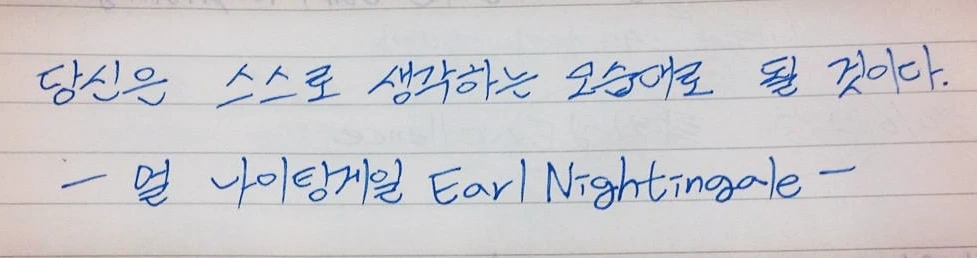 당신은 스스로 생각하는 모습대로 될 것이다.
- 얼 나이팅게일 Earl Nightingale -